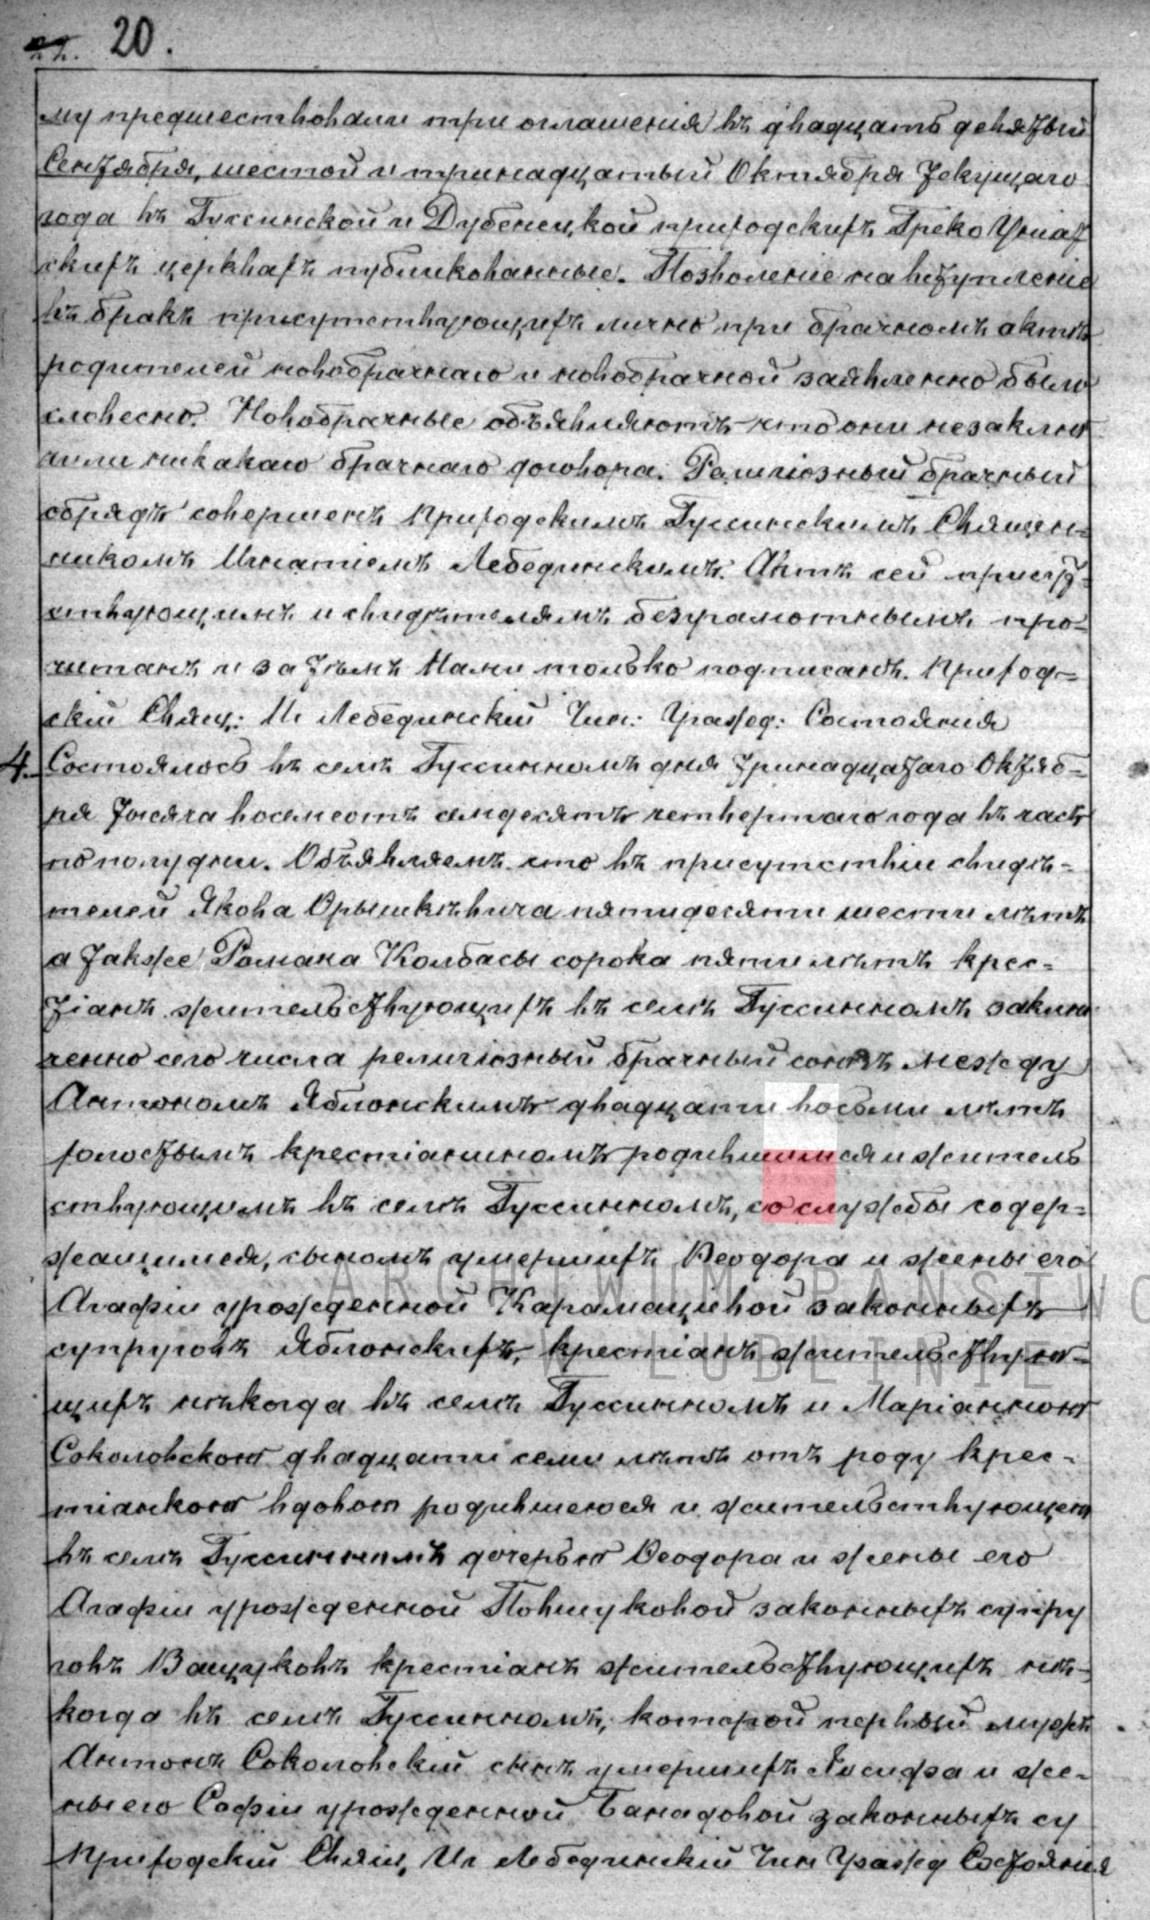 20.
му предшествовали три оглашенія въ двадцать девятый
Сентября, шестой и тринадцатый Октября текущаго
года въ Гуссинской и Дубенецкой приходскихъ Греко Уніат
скихъ церквахъ публикованные. Позволеніе на вступленіе
въ бракъ присутствующихъ лично при брачномъ актѣ
родителей новобрачнаго и новобрачной заявленно было
словесно. Новобрачные объявляютъ что они незаклю
чили никакаго брачнаго договора. Религіозный брачный
обрядъ совершенъ Приходскимъ Гуссинскимъ Священ=
никомъ Игнатіемъ Лебединскимъ. Актъ сей присут=
ствующимъ и свидѣтелямъ безграмотнымъ про=
читанъ и за тѣмъ Нами только подписанъ. Приход=
скій Свящ: Иг Лебединскій Чин: Гражд: Состоянія
4. Состоялось въ селѣ Гуссинномъ дня тринадцатаго Октяб=
ря тысяча восемсотъ семдесятъ четвертаго года въ часъ
по полудни. Объявляемъ что въ присутствіи свидѣ=
телей Якова Орышкѣвича пятидесяти шести лѣтъ
а также Романа Колбасы сорока пяти лѣтъ крес=
тіанъ жительствующихъ въ селѣ Гуссинномъ заклю
ченно сего числа религіозный брачный союзъ между
Антономъ Яблонскимъ двадцати восьми лѣтъ
холостымъ крестіаниномъ родившимся и житель
ствующимъ въ селѣ Гуссинномъ, со службы содер=
жащимся, сыномъ умершихъ Ѳеодора и жены его
Агафіи урожденной Карамацѣвой законныхъ
супруговъ Яблонскихъ, крестіанъ жительствую=
щихъ нѣкогда въ селѣ Гуссинномъ и Маріанною
Соколовскою двадцати семи лѣтъ отъ роду крес=
тіанкою вдовою родившеюся и жительствующею
въ селѣ Гуссинномъ дочерью Ѳеодора и жены его
Агафіи урожденной Повшуковой законныхъ супру
говъ Ващуковъ крестіанъ жительствующихъ нѣ=
когда въ селѣ Гуссинномъ, которой первый мужъ
Антонъ Соколовскій сынъ умершихъ Іосифа и же=
ны его Софіи урожденной Банадовой законныхъ су
Приходскій Свящ, Иг Лебединскій Чин Гражд Состоянія
ARCHIWUM PAŃSTWO
W LUBLINIE